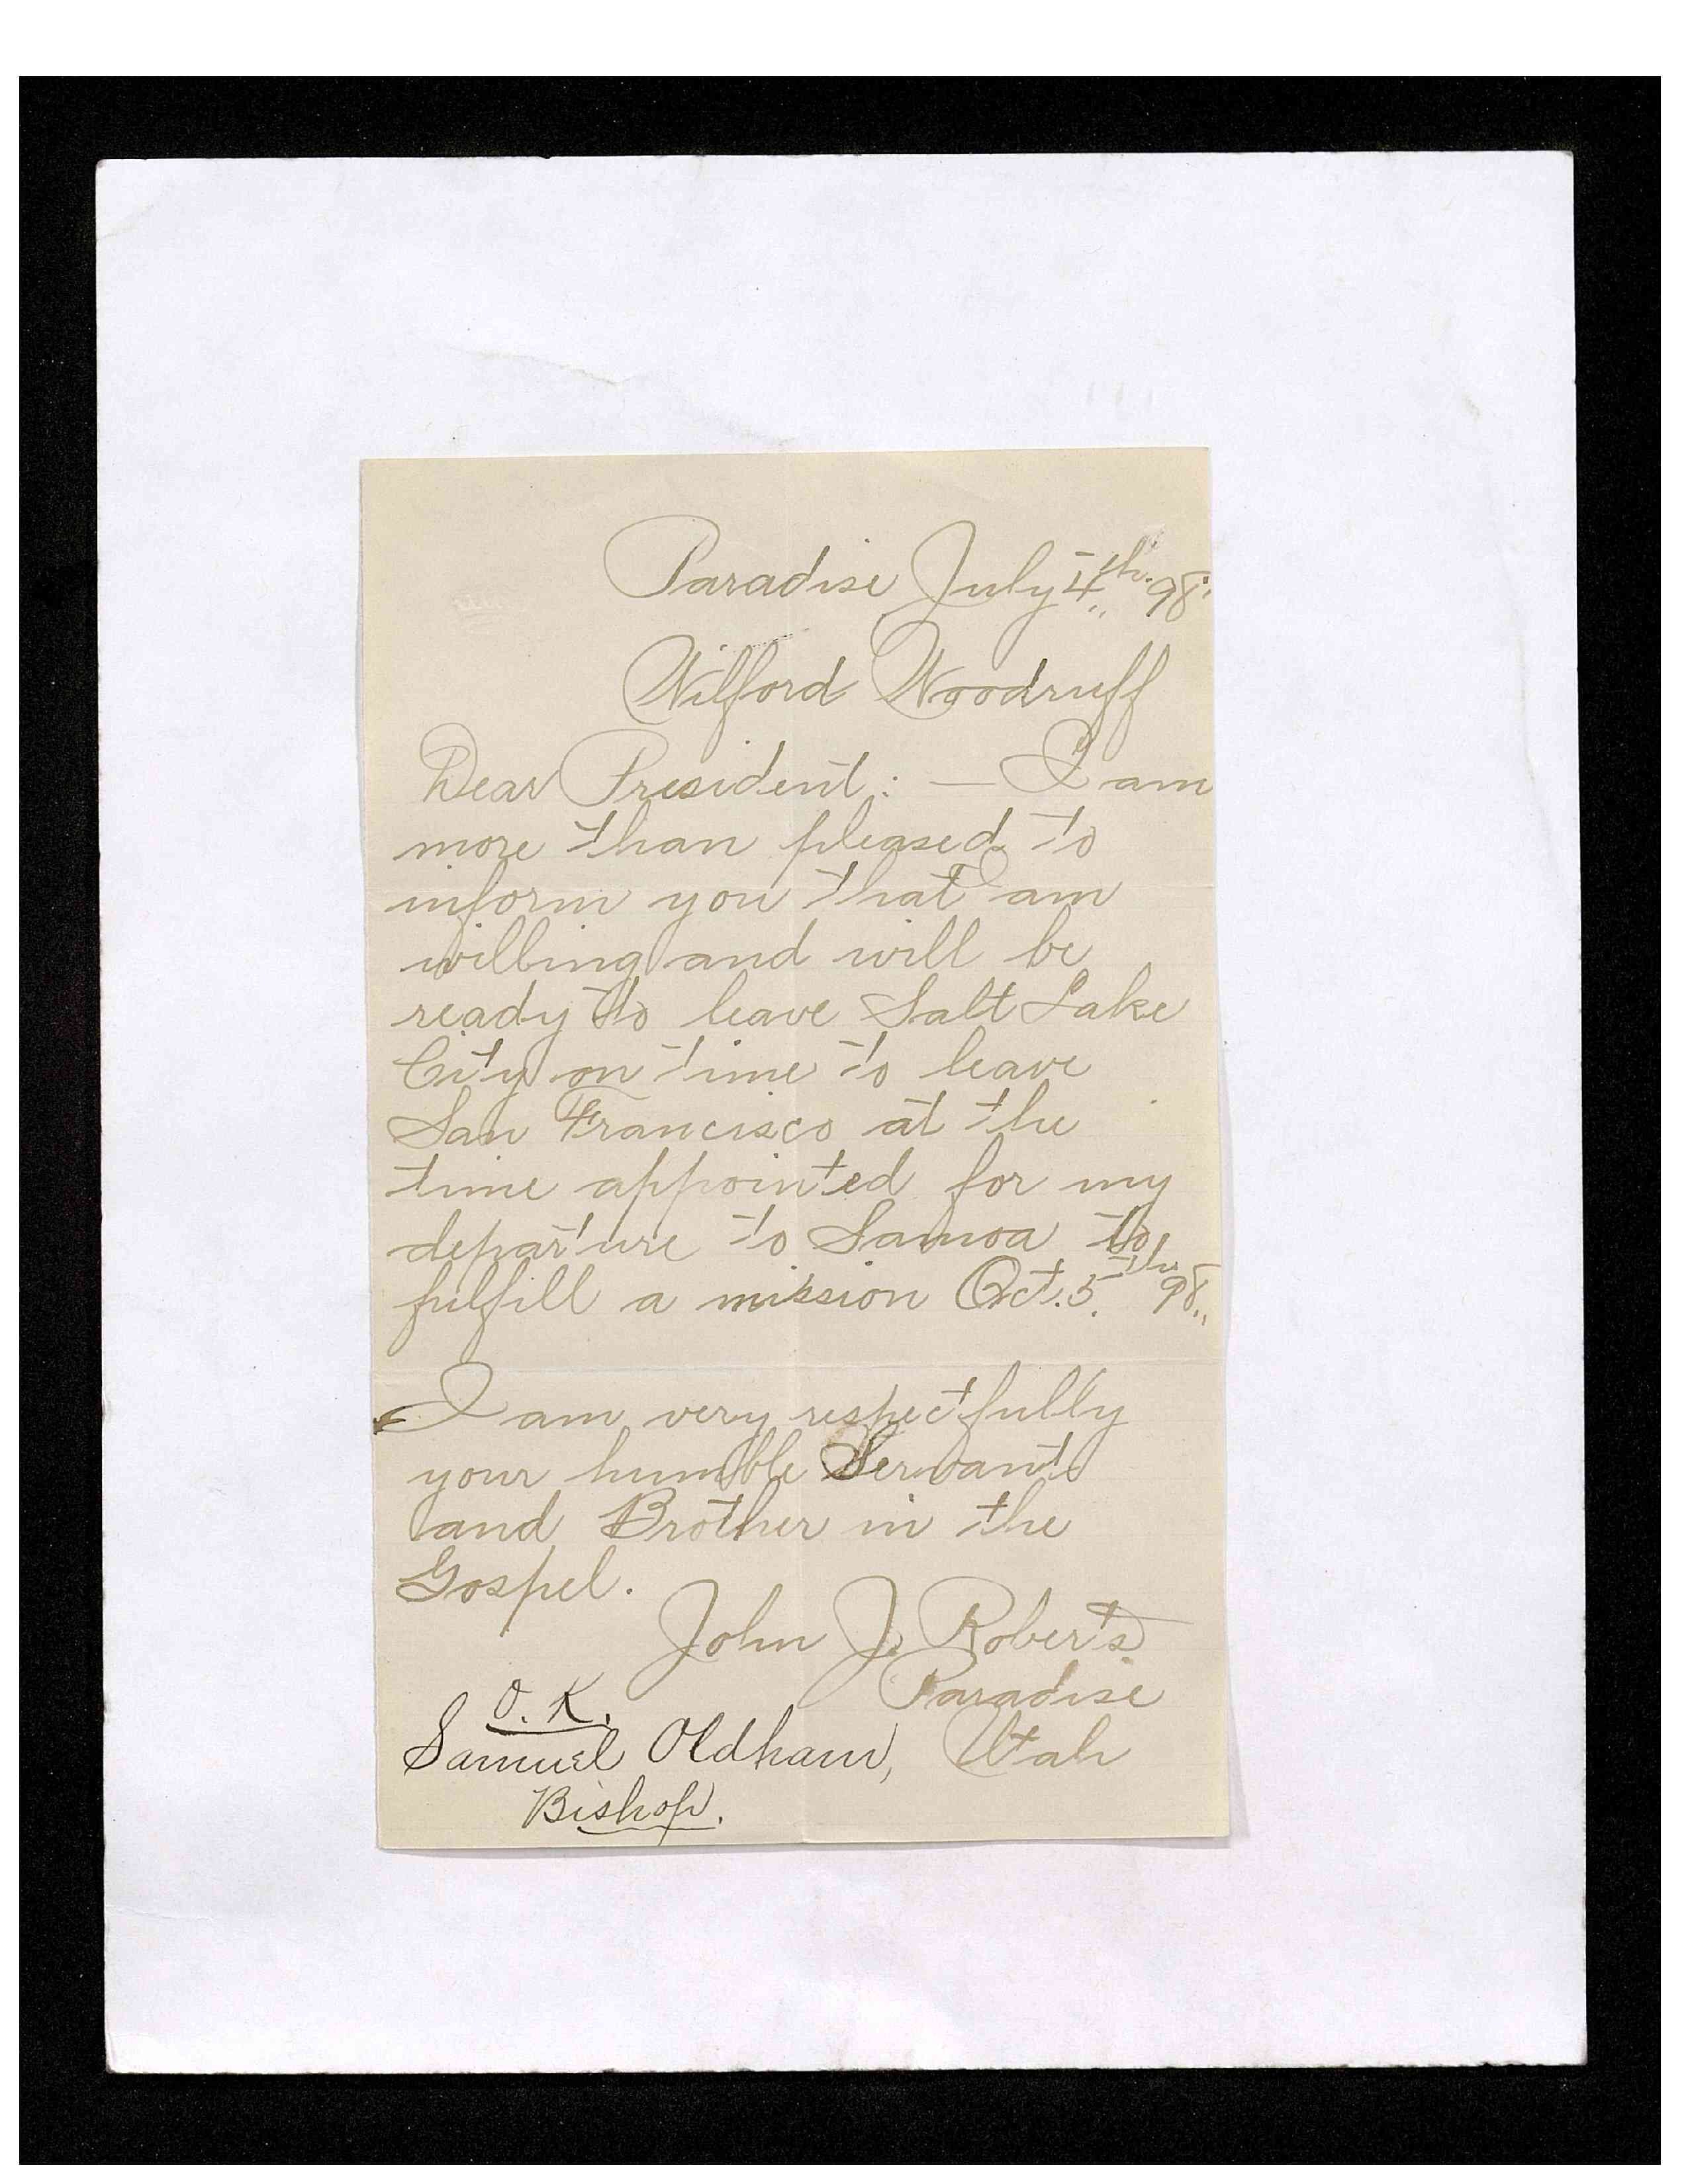 Paradise July 4th. 98.
Wilford Woodruff
Dear President: — I am
more than pleased to
inform you that I am
willing and will be
ready to leave Salt Lake
City on time to leave
San Francisco at the
time appointed for my
departure to Samoa to
fulfill a mission Oct. 5th 98.
I am very respectfully
your humble Servant
and Brother in the
Gospel.
John J. Roberts
Paradise
Utah
O. K.
Samuel Oldham,
Bishop.